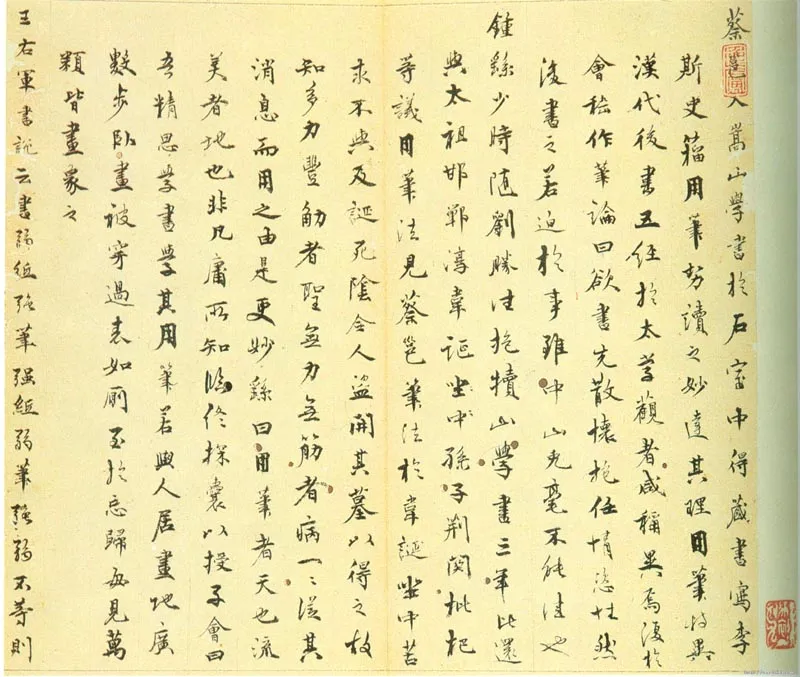 蔡邕入嵩山學書於石室中得藏書寫李
斯史籀用筆勢讀之妙達其理用筆特異
漢代後書五經於太學觀者咸稱異焉復於
會稽作筆論曰欲書先散懷抱任情恣性然
後書之若迫於事雖中山兔毫不能佳也
鍾繇少時隨劉勝往抱犢山學書三年比還
與太祖邯鄲淳韋誕坐中孫子荊關枇杷
等議用筆法見蔡邕筆法於韋誕坐中苦
求不與及誕死陰令人盜開其墓以得之故
知多力豐觔者聖無力無筋者病一一從其
消息而用之由是更妙繇曰用筆者天也流
美者地也非凡庸所知臨終探囊以授子會曰
吾精思學書學其用筆若與人居畫地廣
數步臥畫被穿過表如廁至於忘歸每見萬
類皆畫象之
王右軍書說云書弱紙強筆強紙弱筆強弱不等則